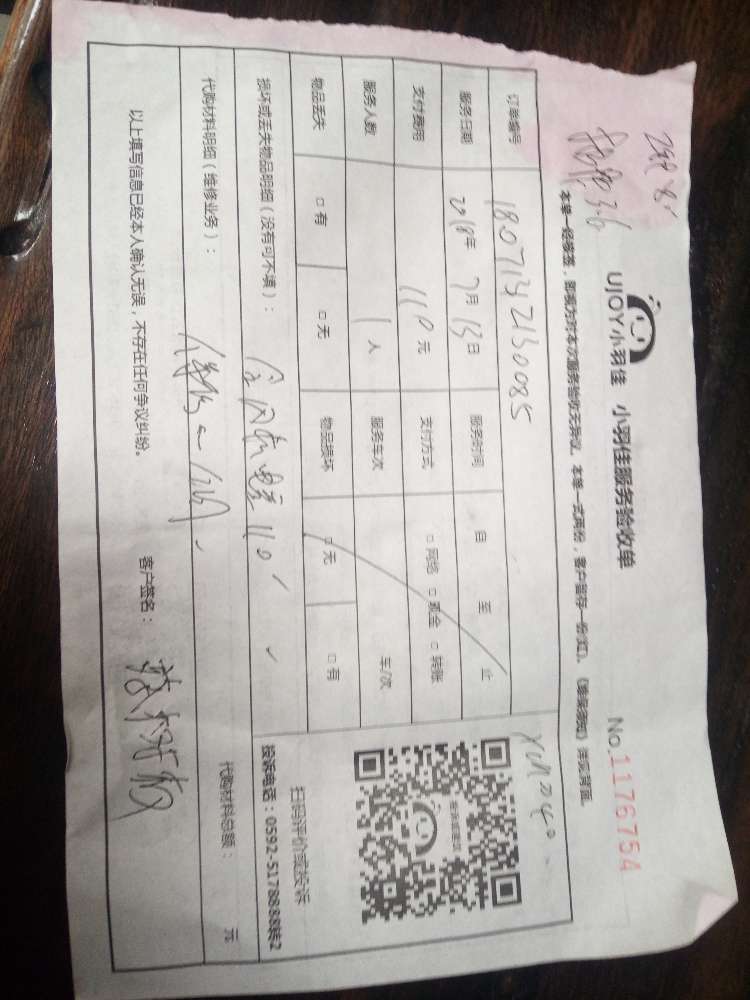 UJOY小羽佳 小羽佳服务验收单 No.1176754
本单一经签签，即视为对本次服务验收无异议。本单一式两份，客户留存一份(红)。《事保须知》详见背面。
订单编号 180713421300085
服务日期 2018年 7月 13日 服务时间 自 至 止
支付费用 110元 支付方式 □网络 □现金 □转账
服务人数 1人 服务车次 车/次
物品丢失 □有 □无 物品损坏 □无 □有
损坏或丢失物品明细（没有可不填）： 110
代购材料明细（维修业务）：
代购材料总额： 元
以上填写信息已经本人确认无误，不存在任何争议纠纷。 客户签名：
扫码评价或投诉
投诉电话：0592-5178888转2